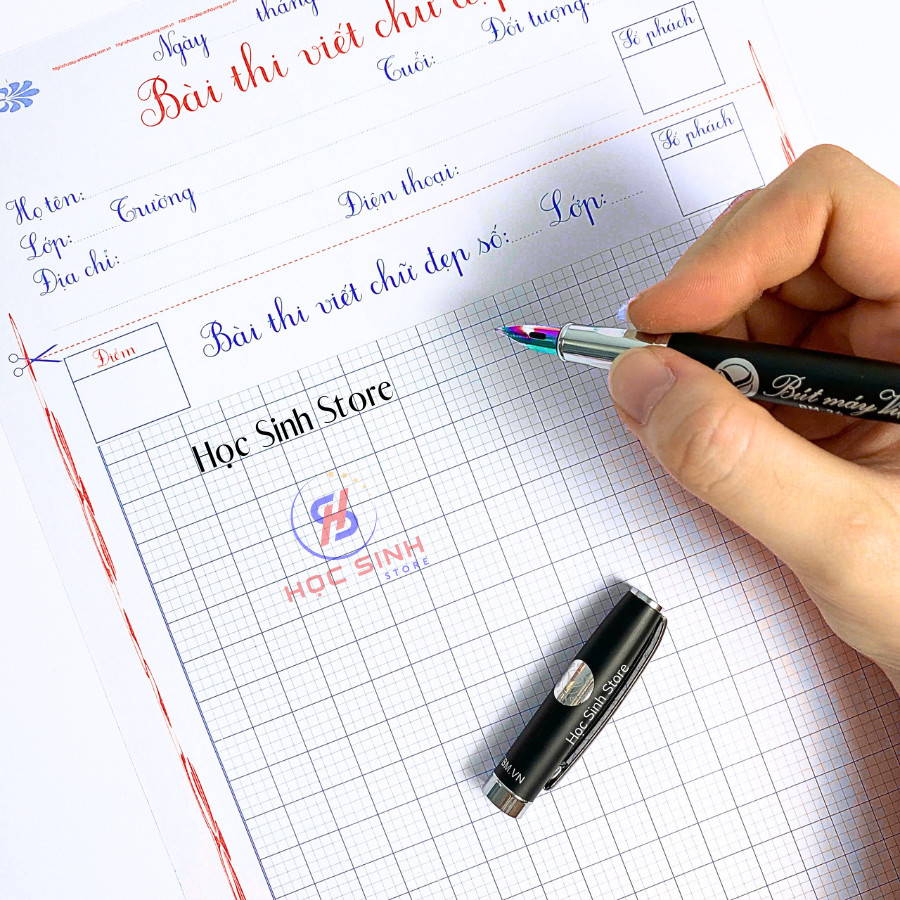 Ngày tháng
Bài thi viết chữ đẹp
Tuổi: Đối tượng:
Số phách
Họ tên:
Lớp: Trường
Địa chỉ: Điện thoại:
Số phách
Bài thi viết chữ đẹp số: Lớp:
Điểm
Học Sinh Store
HỌC SINH
STORE
Bút máy
Học Sinh Store
BM.VN